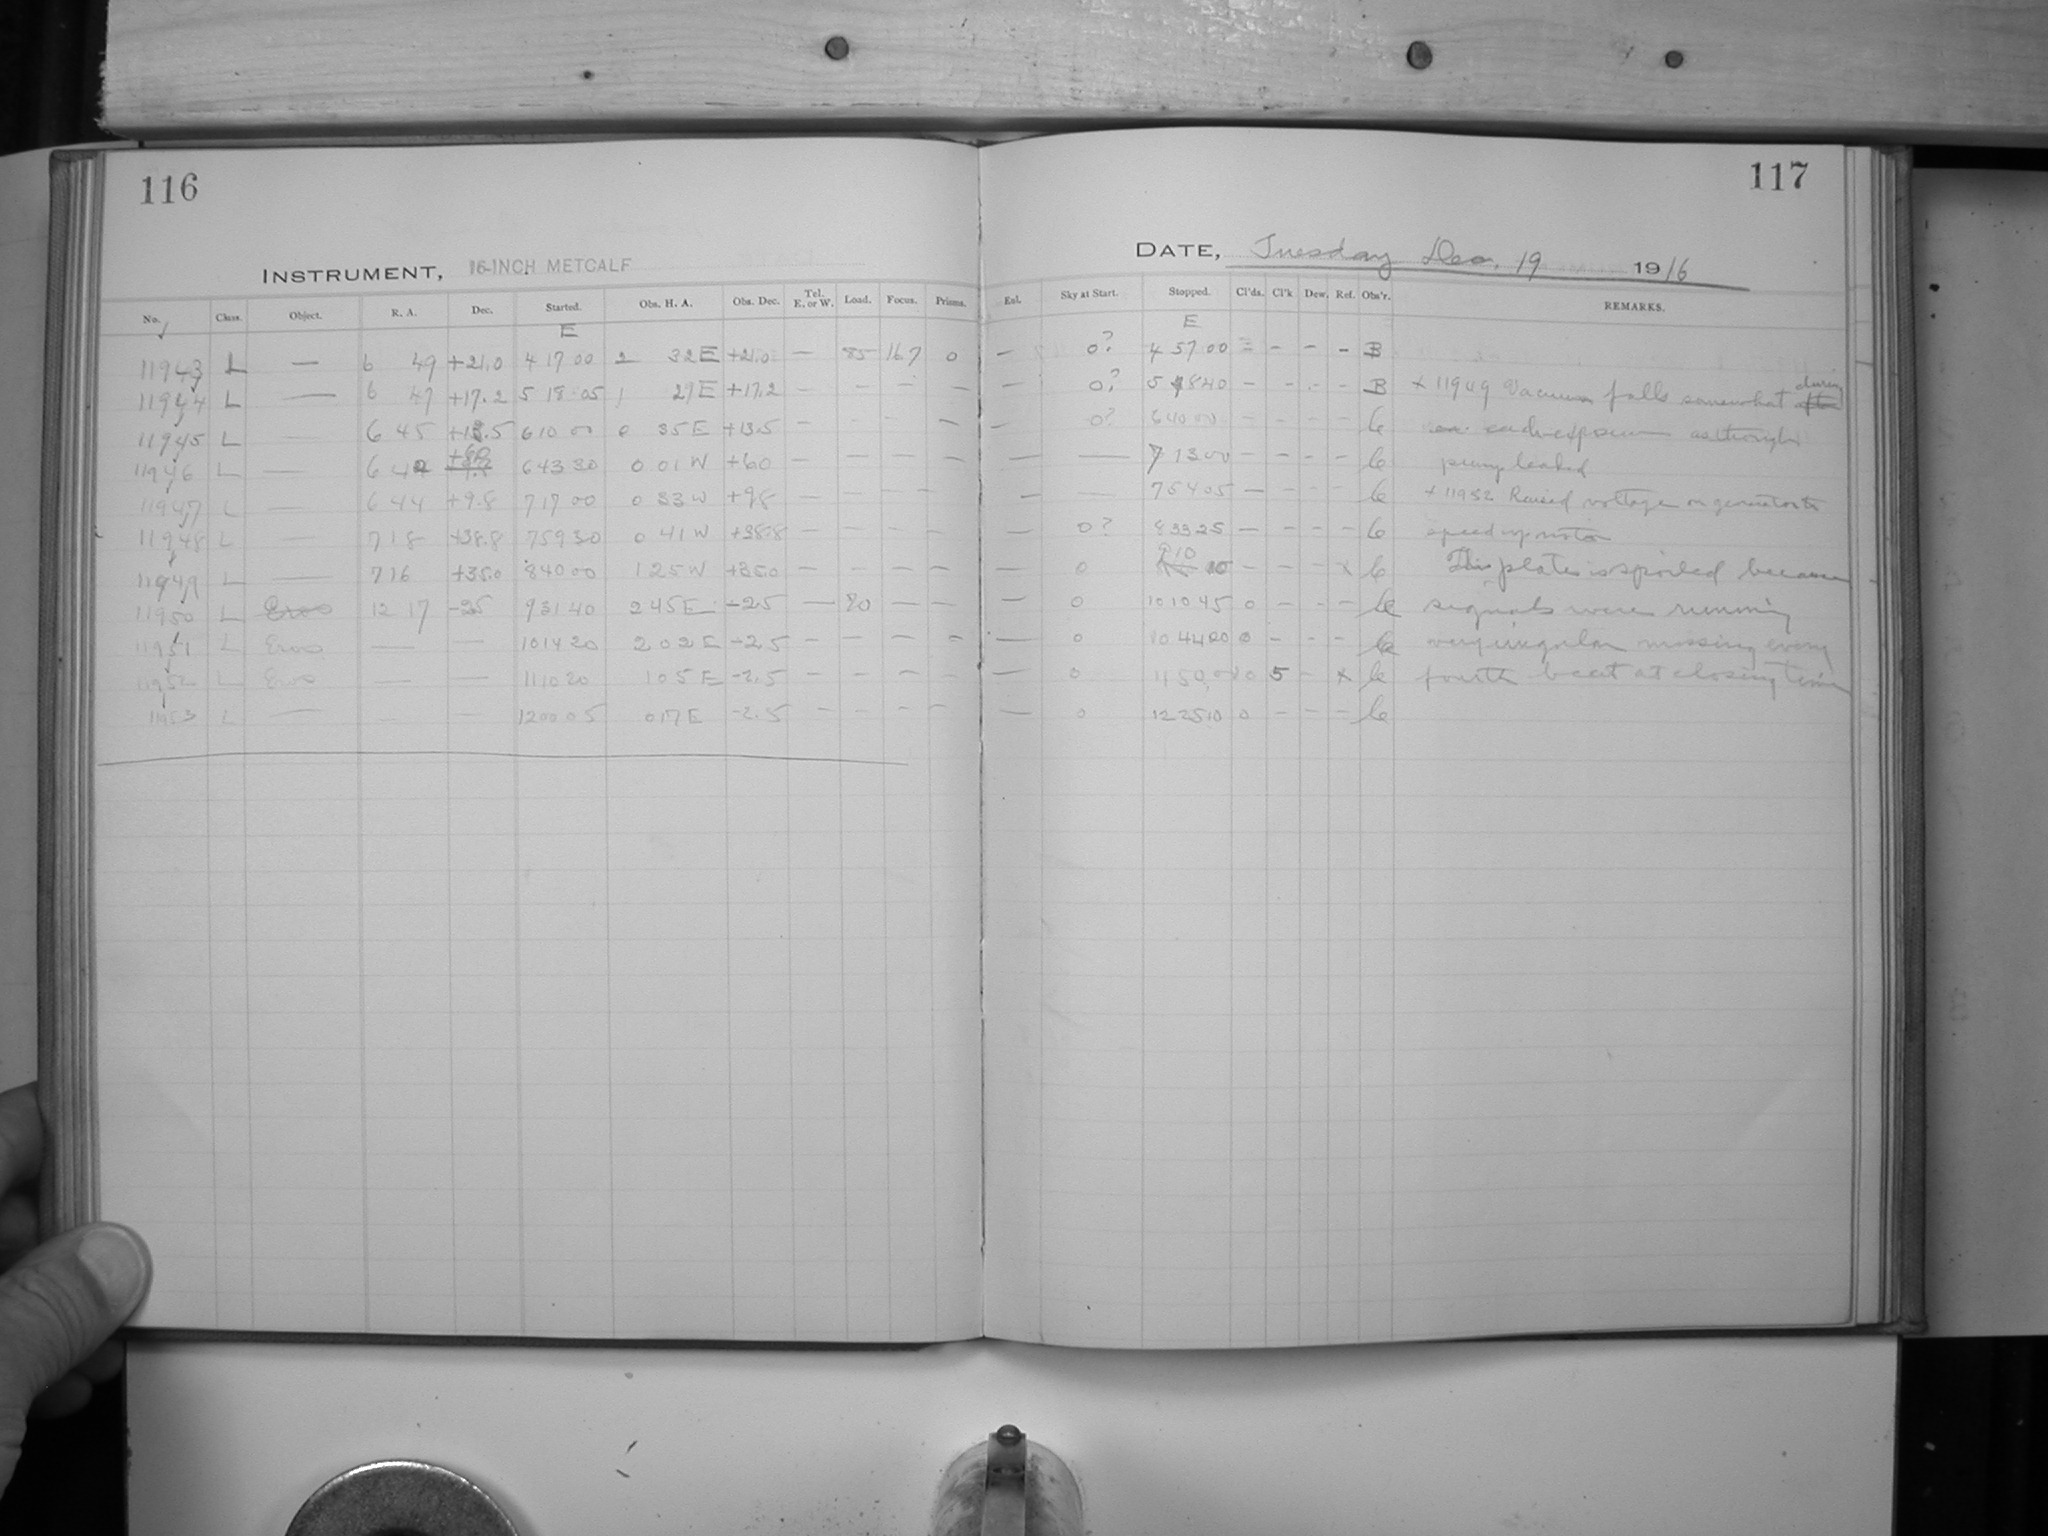 116
INSTRUMENT, 16-INCH METCALF
No. Class. Object. R. A. Dec. Started. Obs. H. A. Obs. Dec. Tel. E. or W. Load. Focus. Prisms.
E
11943 L — 6 49 +21.0 4 17 00 2 32 E +21.0 — 85 16.7 0
11944 L — 6 47 +17.2 5 18 05 1 29 E +17.2 — — — —
11945 L — 6 45 +13.5 6 10 00 0 35 E +13.5 — — — —
11946 L — 6 42 +60 6 43 30 0 01 W +60 — — — —
11947 L — 6 44 +9.8 7 17 00 0 33 W +98 — — — —
11948 L — 7 18 +38.8 7 59 30 0 41 W +38.8 — — — —
11949 L — 7 16 +35.0 8 40 00 1 25 W +35.0 — — — —
11950 L Eros 12 17 -25 9 31 40 2 45 E -2.5 — 80 — —
11951 L Eros — — 10 14 20 2 02 E -2.5 — — — —
11952 L Eros — — 11 10 20 1 05 E -2.5 — — — —
11953 L — — — 12 00 05 0 17 E -2.5 — — — —
117
DATE, Tuesday Dec. 19 1916
Eul. Sky at Start. Stopped. Cl'ds. Cl'k Dew. Ref. Obs'r. REMARKS.
E
— 0? 4 57 00 — — — — B
— 0? 5 58 40 — — — — B × 11949 Vacuum falls somewhat during
— 0? 6 40 00 — — — — C each exposure as though
— — 7 13 00 — — — — C pump leaked
— — 7 54 05 — — — — C × 11952 Raised voltage on generator to
— 0? 8 33 25 — — — — C speed up motor
— 0 9 10 — — — × C This plate is spoiled because
— 0 10 10 45 0 — — — C signals were running
— 0 10 44 20 0 — — — C very irregular missing every
— 0 11 50 0 5 — × C fourth beat at closing time
— 0 12 25 10 0 — — — C